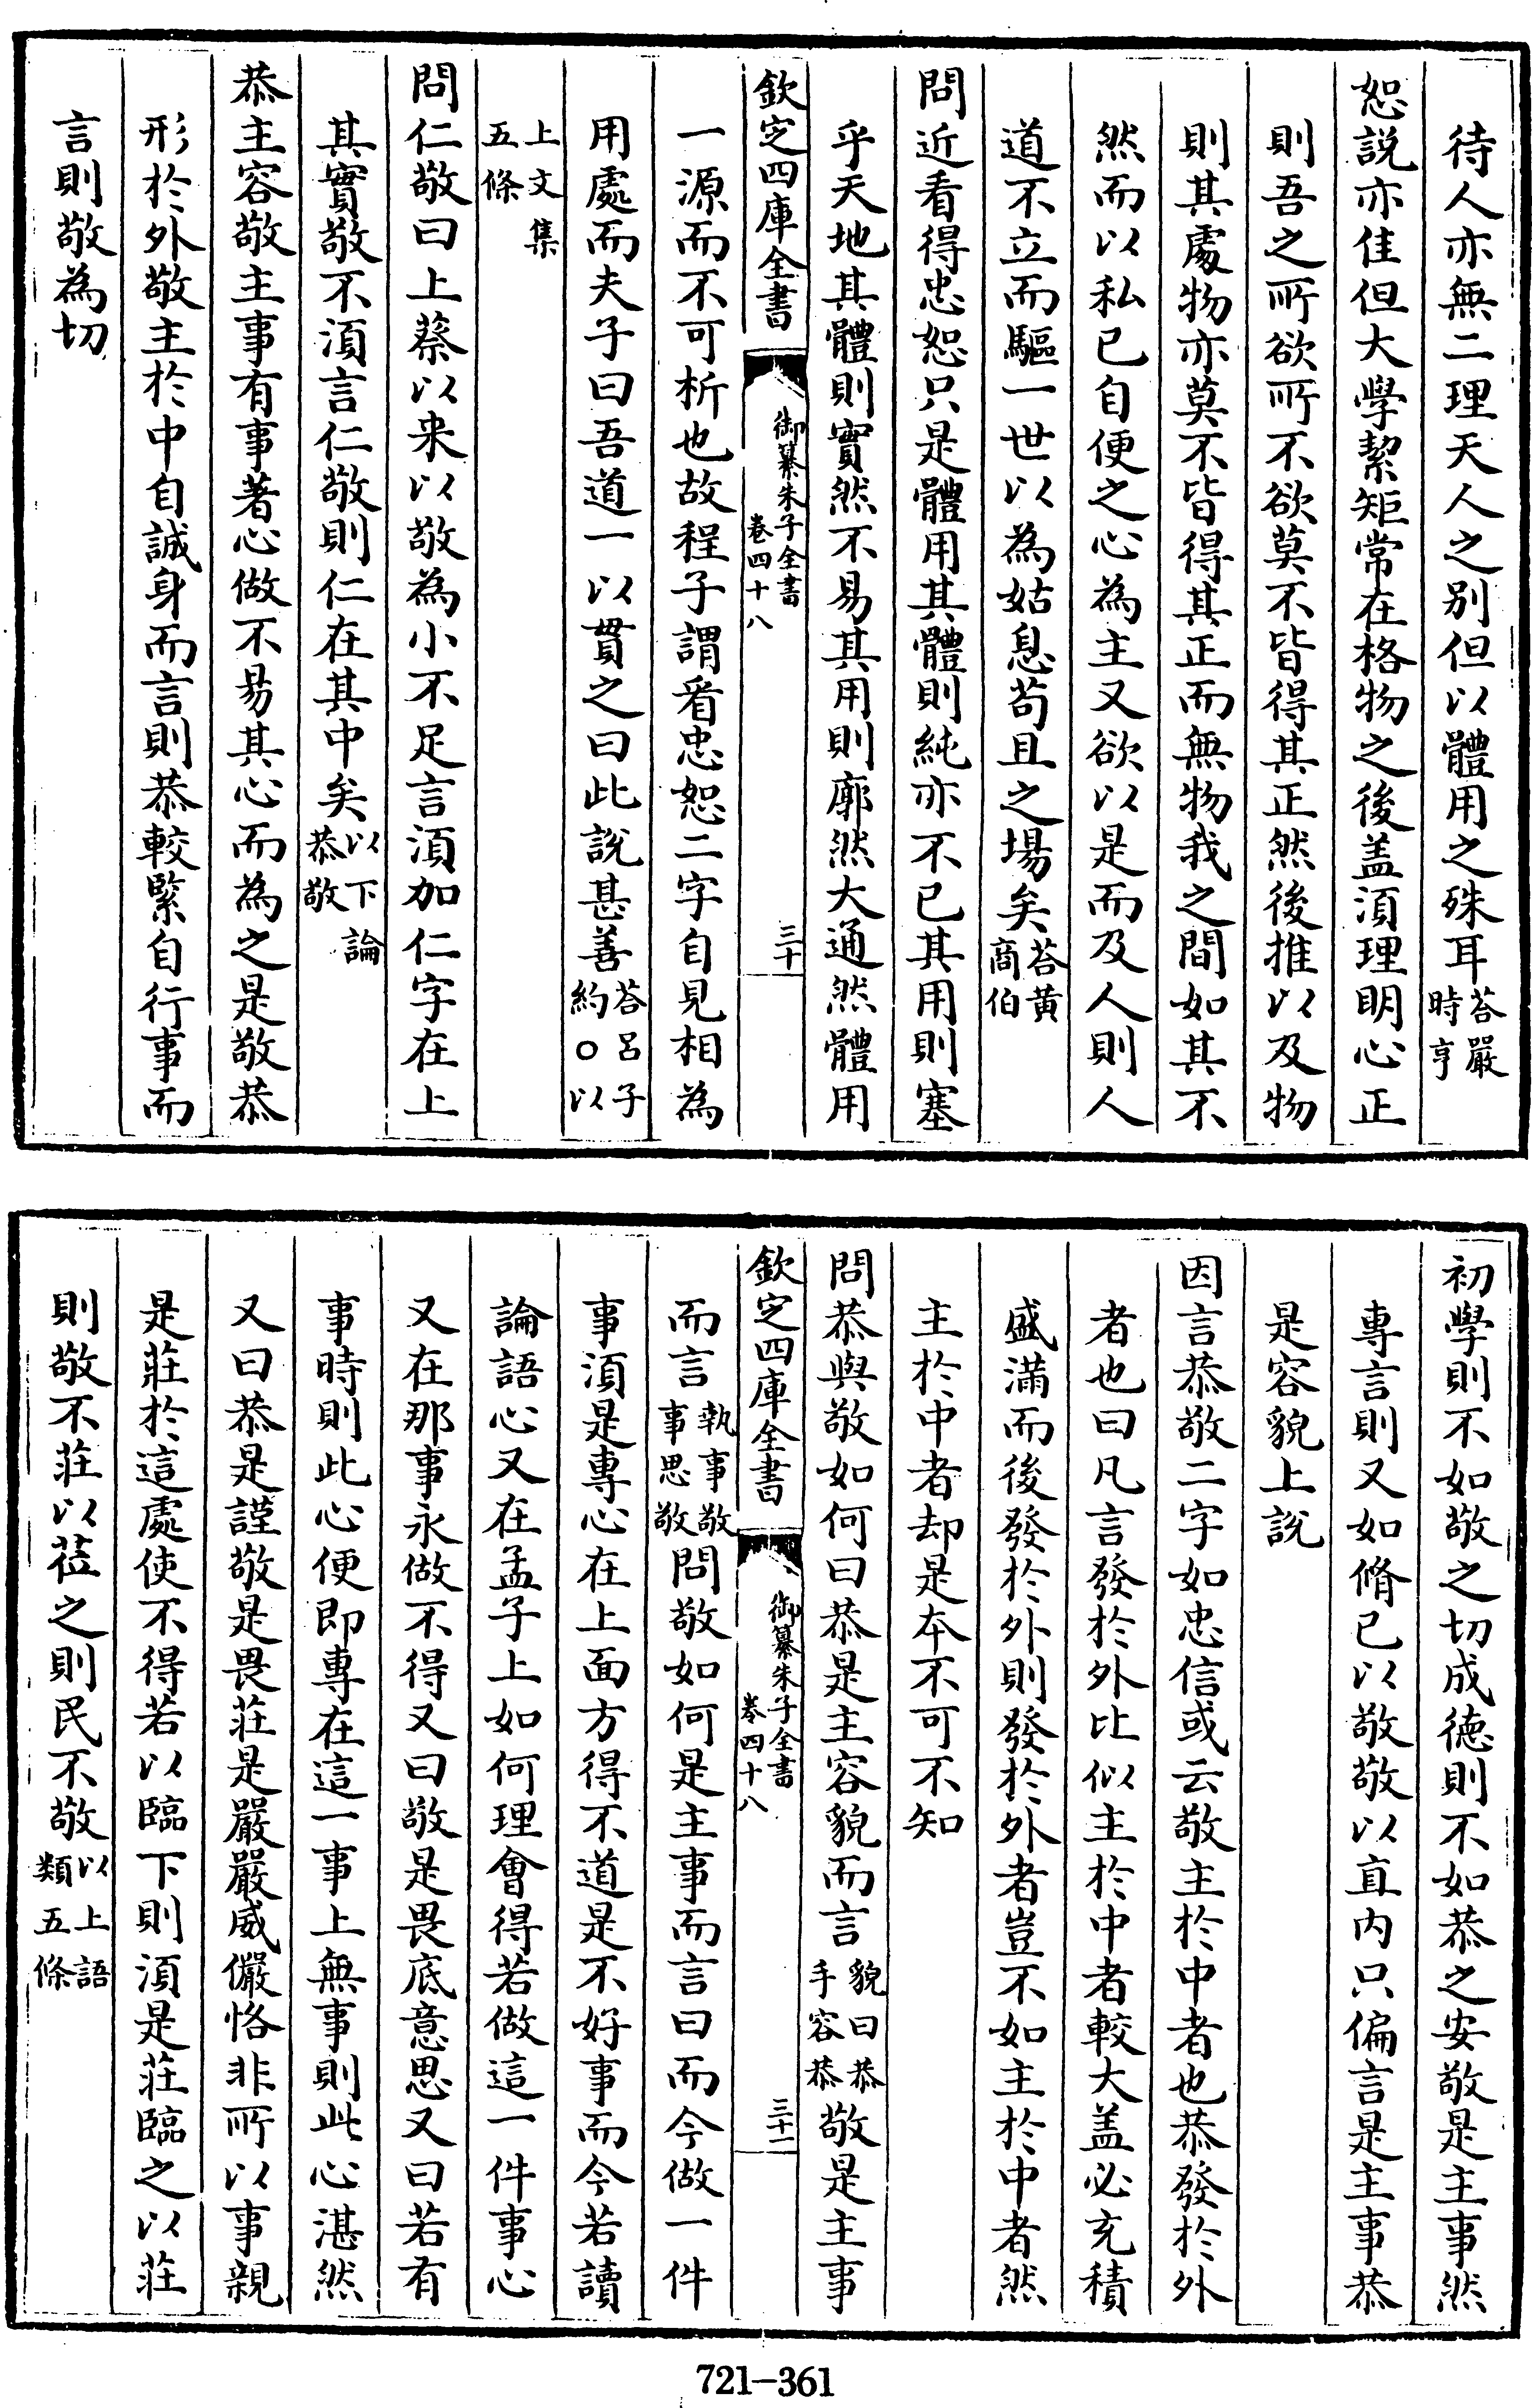 待人亦無二理天人之别但以體用之殊耳荅嚴時亨
恕説亦佳但大學絜矩常在格物之後盖須理明心正
則吾之所欲所不欲莫不皆得其正然後推以及物
則其處物亦莫不皆得其正而無物我之間如其不
然而以私已自便之心為主又欲以是而及人則人
道不立而驅一世以為姑息苟且之場矣荅黄商伯
問近看得忠恕只是體用其體則純亦不已其用則塞
乎天地其體則實然不易其用則廓然大通然體用
欽定四庫全書 御纂朱子全書 卷四十八 三十
一源而不可析也故程子謂看忠恕二字自見相為
用處而夫子曰吾道一以貫之曰此説甚善荅呂子約○以
上文集五條
問仁敬曰上蔡以来以敬為小不足言須加仁字在上
其實敬不須言仁敬則仁在其中矣以下論恭敬
恭主容敬主事有事著心做不易其心而為之是敬恭
形於外敬主於中自誠身而言則恭較緊自行事而
言則敬為切
初學則不如敬之切成德則不如恭之安敬是主事然
專言則又如脩已以敬敬以直内只偏言是主事恭
是容貌上說
因言恭敬二字如忠信或云敬主於中者也恭發於外
者也曰凡言發於外比似主於中者較大盖必充積
盛滿而後發於外則發於外者豈不如主於中者然
主於中者却是本不可不知
問恭與敬如何曰恭是主容貌而言貌曰恭手容恭敬是主事
欽定四庫全書 御纂朱子全書 卷四十八 三十一
而言執事敬事思敬問敬如何是主事而言曰而今做一件
事須是專心在上面方得不道是不好事而今若讀
論語心又在孟子上如何理會得若做這一件事心
又在那事永做不得又曰敬是畏底意思又曰若有
事時則此心便即專在這一事上無事則此心湛然
又曰恭是謹敬是畏莊是嚴嚴威儼恪非所以事親
是莊於這處使不得若以臨下則須是莊臨之以莊
則敬不莊以莅之則民不敬以上語類五條
721-361